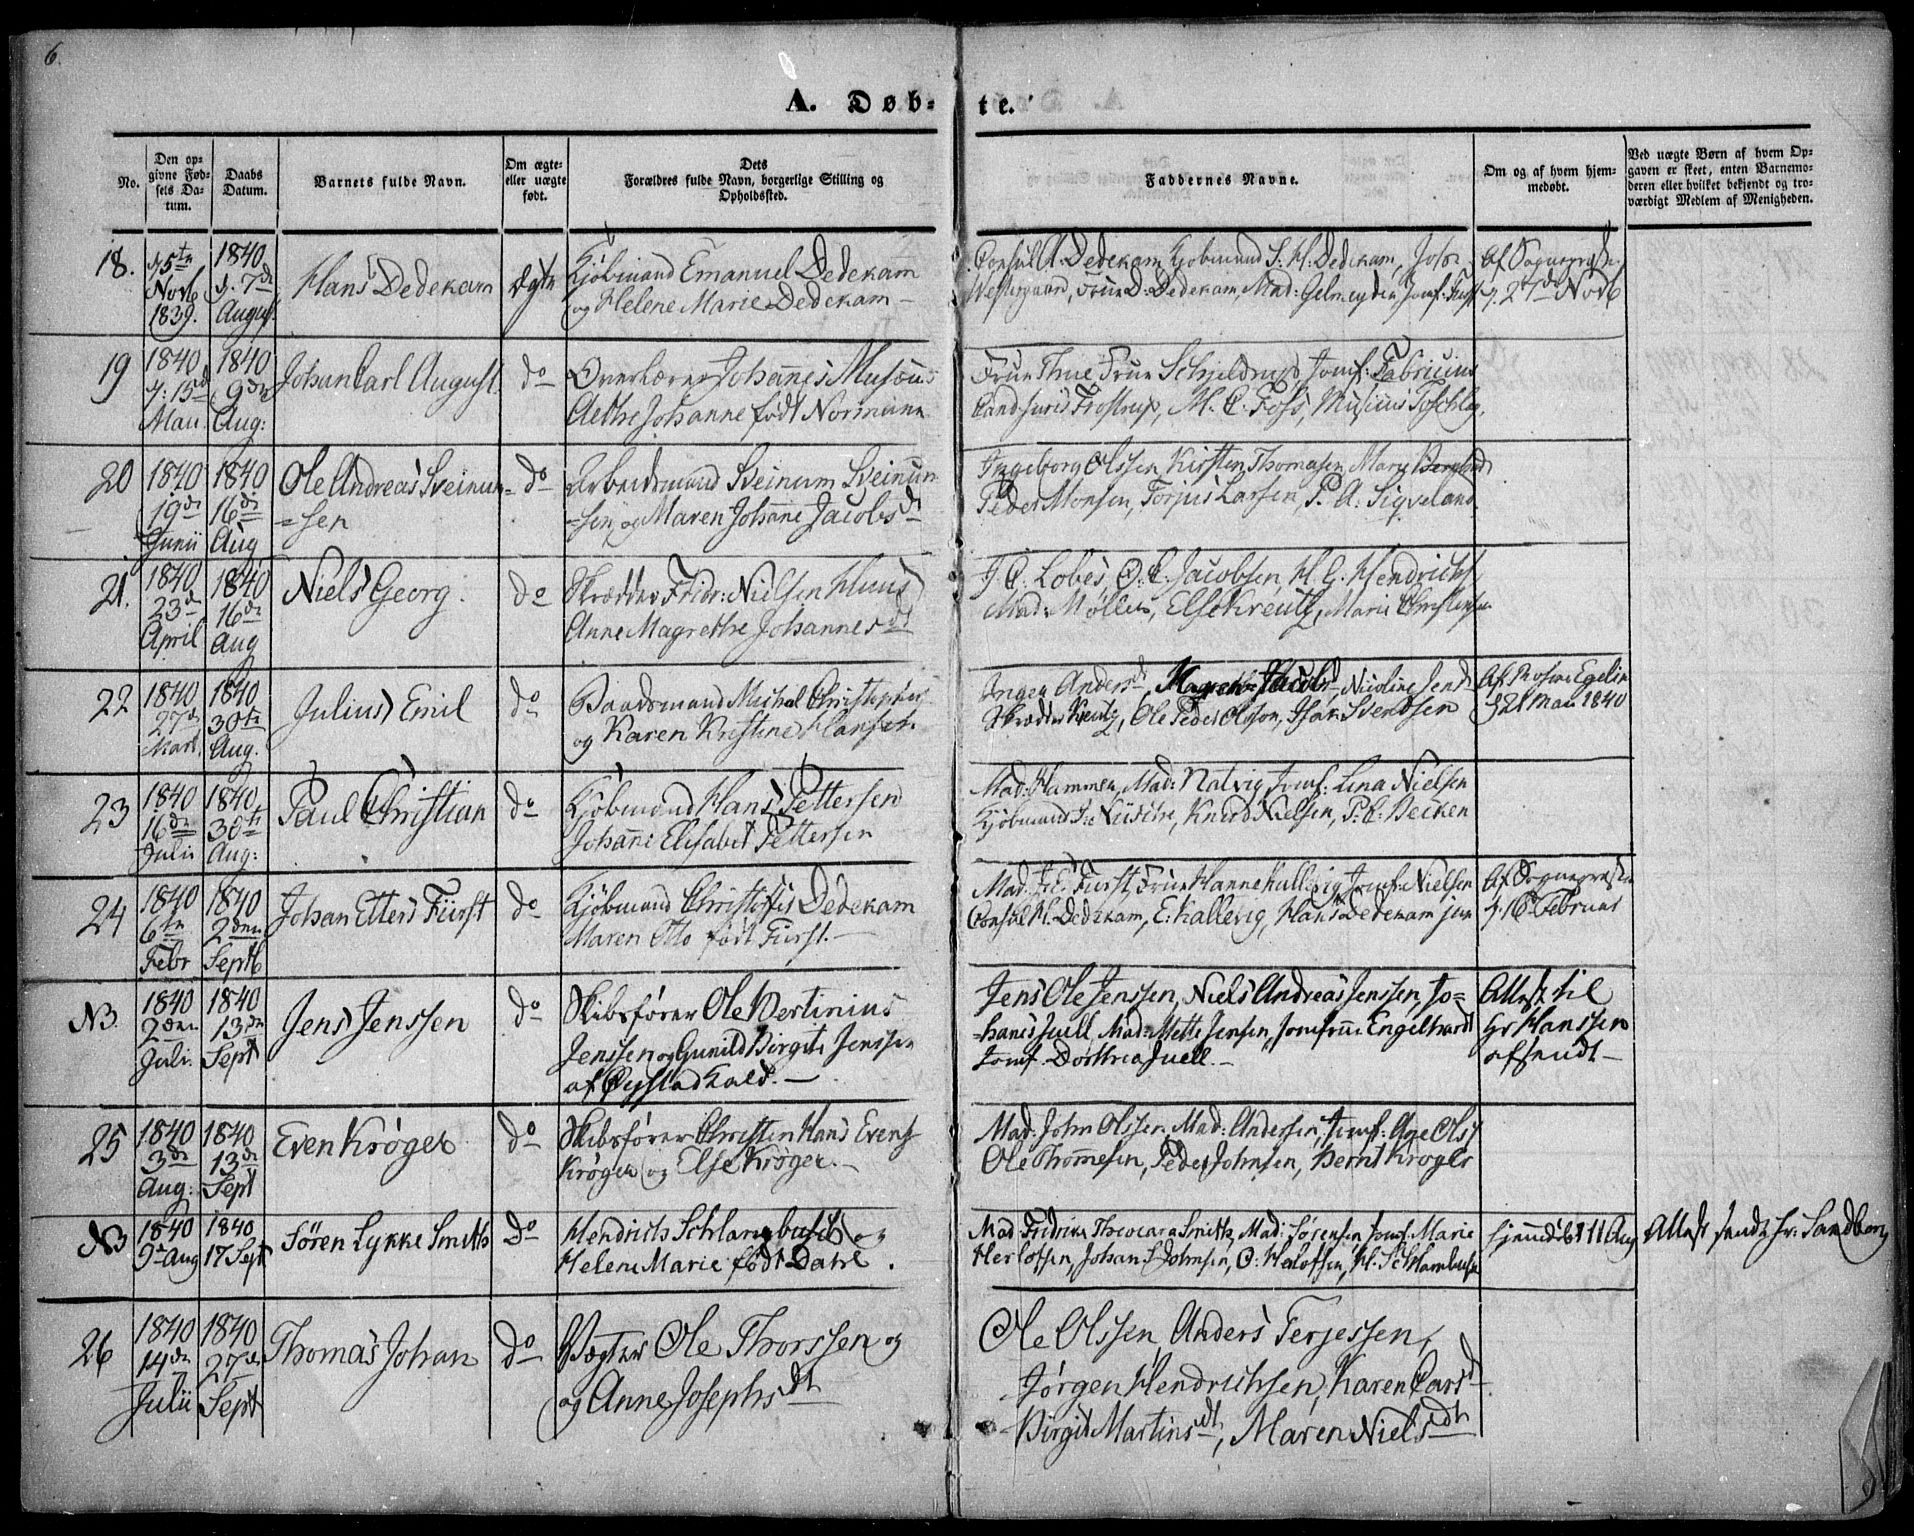 6.
A. Døb- te.
No.
Den op-
givne Fød-
sels Da-
tum.
Daabs
Datum.
Barnets fulde Navn.
Om ægte-
eller uægte
født.
Dets
Forældres fulde Navn, borgerlige Stilling og
Opholdssted.
Faddernes Navne.
Om og af hvem hjem-
medøbt.
Ved uægte Børn af hvem Op-
gaven er skeet, enten Barnemo-
deren eller hvilket bekjendt og tro-
værdigt Medlem af Menigheden.
18.
d. 5te
Novb
1839.
1840
d. 7de
August
Hans Dedekam
Ægte
Kjøbmand Emanuel Dedekam
og Helene Marie Dedekam
Consul A. Dedekam Kjøbmand S. H. Dedekam,
Westergaard, Frue D. Dedekam, Mad: Jomf:
Af Sognepræsten
d. 27de Novb
19
1840
d: 15de
Mai
1840
9de
Aug:
Johan Carl August
do
Overlærer Johannes Musæus
Johanne født Normann
Frue Thue, Frue Schjeldrup, Jomf: Fabricius
Cand. juris Frostrup, M. C. Foss, Musæus
20
1840
19de
Junii
1840
16de
Aug
Ole Andreas Sveinun-
=sen
do
Arbeidsmand Sveinum Sveinun
=sen, og Maren Johanne Jacobsdt
Ingeborg Olssen, Kirsten Thomasen, Marie
Peder Monsen, Torjus Larsen, P. A. Siqveland.
21.
1840
23de
April
1840
16de
Aug
Niels Georg.
do
Skrædder Fridr: Nielsen Huus
Anne Magrethe Johannesdt
Lobes, O. C. Jacobsen, H. G. Hendrichs
Mad: Møller, Else Kreutz, Marie Christensen
22
1840
27de
Mart.
1840
30te
Aug.
Julius Emil
do
Baadsmand Michal Christophersen
og Karen Kristine Hansen.
Ingen Andersdt, Magrethe Jacobsdt, Nicoline Jensdt
Skrædder Kreutz, Ole Peder Olsson, Isak Svendsen
Af
Mai 1840
23
1840
16de
Julii
1840
30te
Aug:
Paul Christian
do
Kjøbmand Hans Pettersen
Johanne Elisabet Pettersen
Mad: Hammer, Mad: Natvig Jomf: Lina Nielsen
Kjøbmand Knud Nielsen, P. C. Becken
24
1840
6te
Febr
1840
2den
Septb
Johan Etters Fürst
do
Kjøbmand Christoffer Dedekam
Maren Otto født Fürst.
Mad. Fürst, Frue Hanne Kallevig, Jomf: Nielsen
Consul H. Dedekam, E. Kallevig, Hans Dedekam jun
Af Sognepræsten
d. 16 Februar
NB
1840
2den
Juli.
1840
13de
Sept
Jens Jenssen
do
Skibsfører Ole Bertinius
Jenssen og Gunild Birgite Jenssen
af Øystad Kald.
Jens Ole Jenssen, Niels Andreas Jenssen, Jo=
hanes Juell, Mad: Mette Jensen, Jomfrue Engelhardt
Jomf. Dorthea Juell.
Attest til
Hr Hanssen
afsendt
25
1840
3de
Aug:
1840
13de
Sept
Even Krøger
do
Skibsfører Christen Hans Evens
Krøger og Else Krøger.
Mad: John Olssen, Mad: Andersen, Jomf: Ane Ols
Ole Thomesen, Peder Johnsen, Bernt Krøger
NB
1840
9de Aug
1840
17 Sept
Søren Lykke Smith
Do
Hendrich Schlambusch og
Helene Marie født Dahl.
Mad: Fridrica Theodora Smith, Mad: Sørensen, Jomf. Marie
Herlofsen, Johan S. Johnsen, O: Herlofsen, H. Schlambusch
hjemmedøbt 11 Aug
Attest sendt hr. Sandberg
26
1840
14de
Julii
1840
27de
Sept
Thomas Johan
do
Vægter Ole Thorssen og
og Anne Josephsdt
Ole Olssen, Anders Terjessen,
Jørgen Hendrichsen, Karen Larsdt.
Birgit Martinsdt, Maren Nielsdt